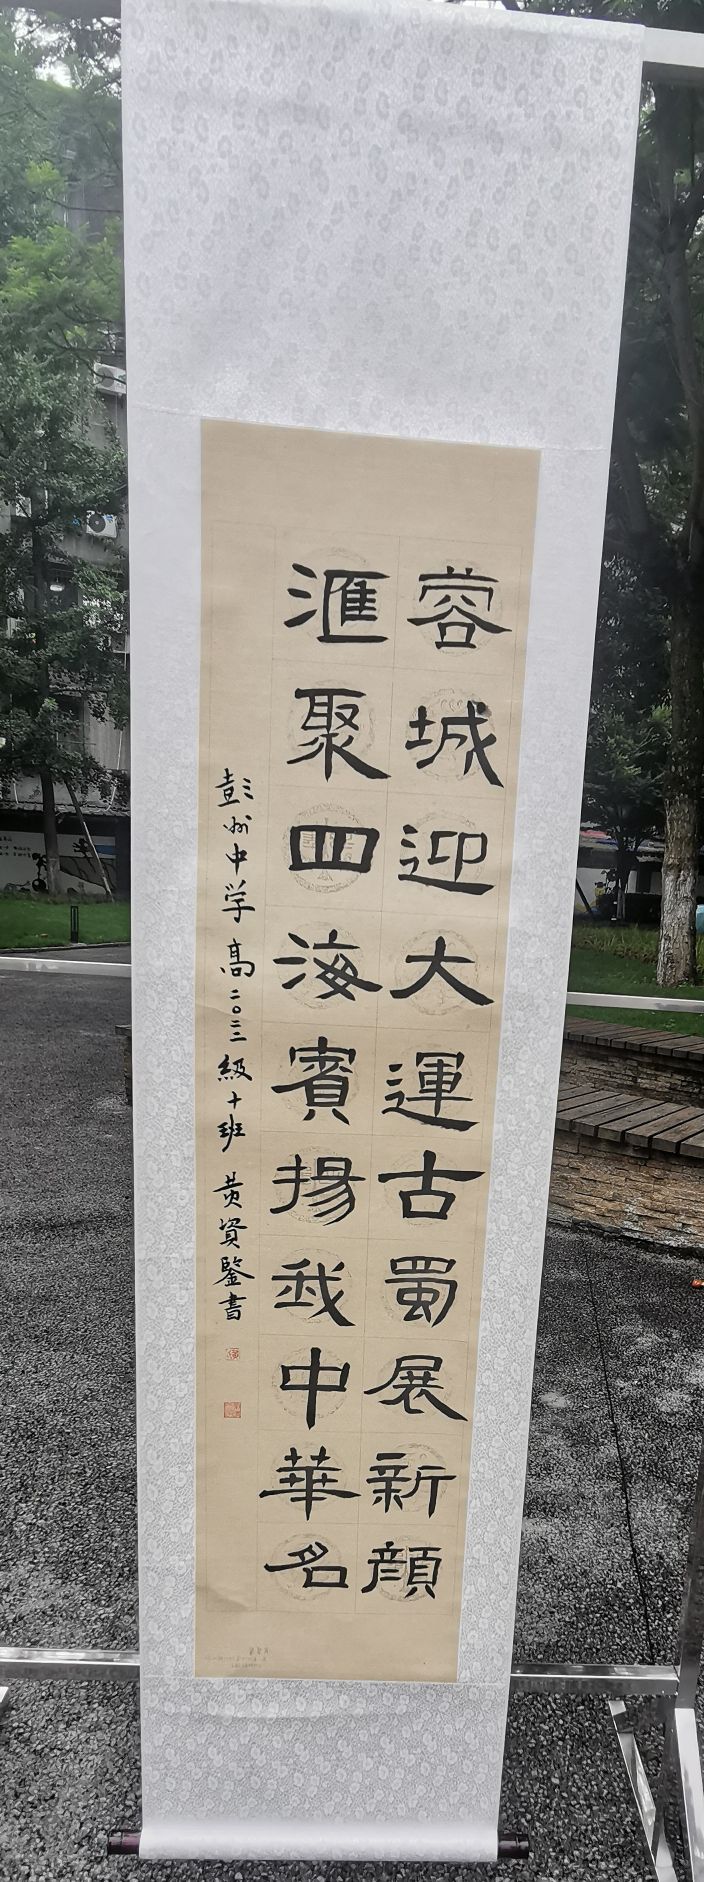 蓉城迎大運古蜀展新顔
滙聚四海賓揚我中華名
彭州中学高二〇二二級十班 黄資鋻書